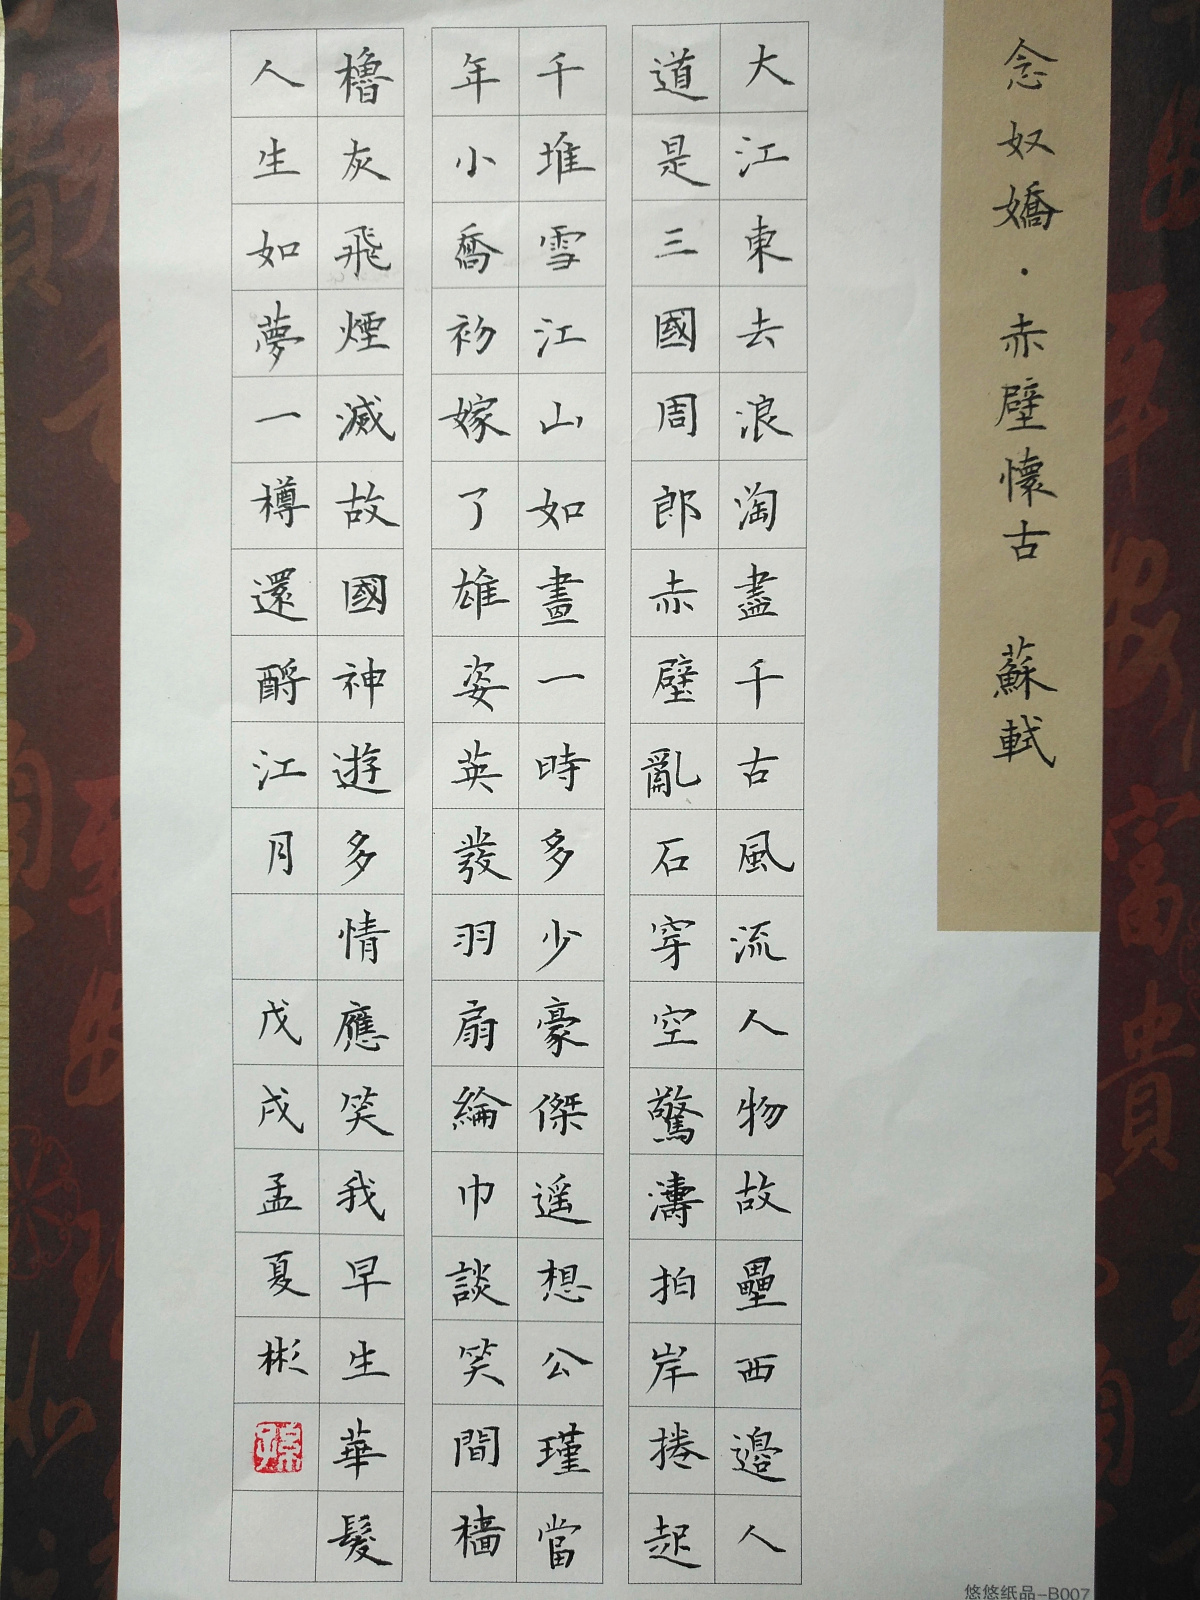 念奴嬌·赤壁懷古 蘇軾
大江東去浪淘盡千古風流人物故壘西邊人
道是三國周郎赤壁亂石穿空驚濤拍岸捲起
千堆雪江山如畫一時多少豪傑遥想公瑾當
年小喬初嫁了雄姿英發羽扇綸巾談笑間檣
櫓灰飛煙滅故國神遊多情應笑我早生華髮
人生如夢一樽還酹江月 戊戌孟夏彬
悠悠纸品-B007